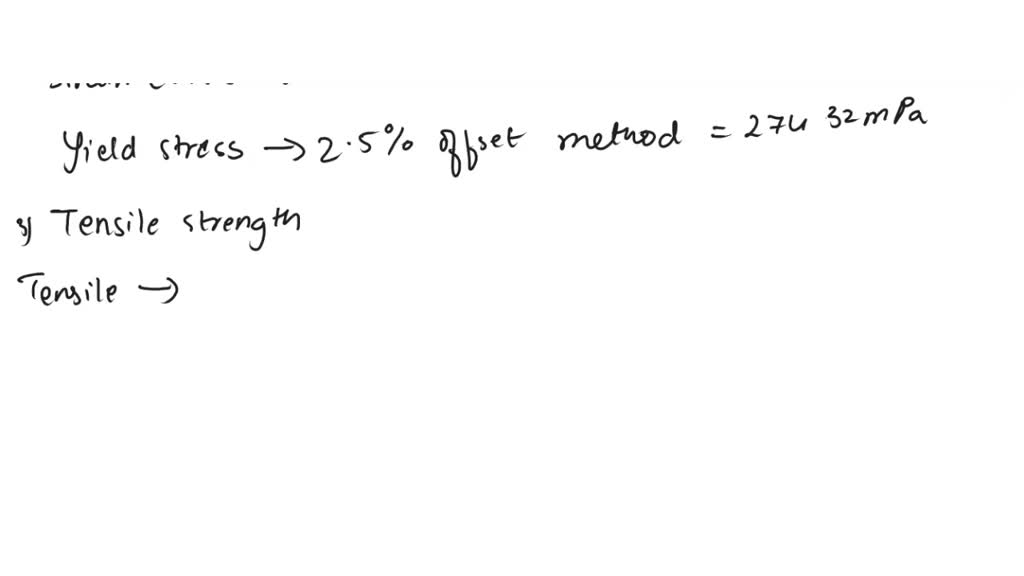 Yield stress → 2.5% offset method = 274 32 mPa
3) Tensile strength
Tensile →